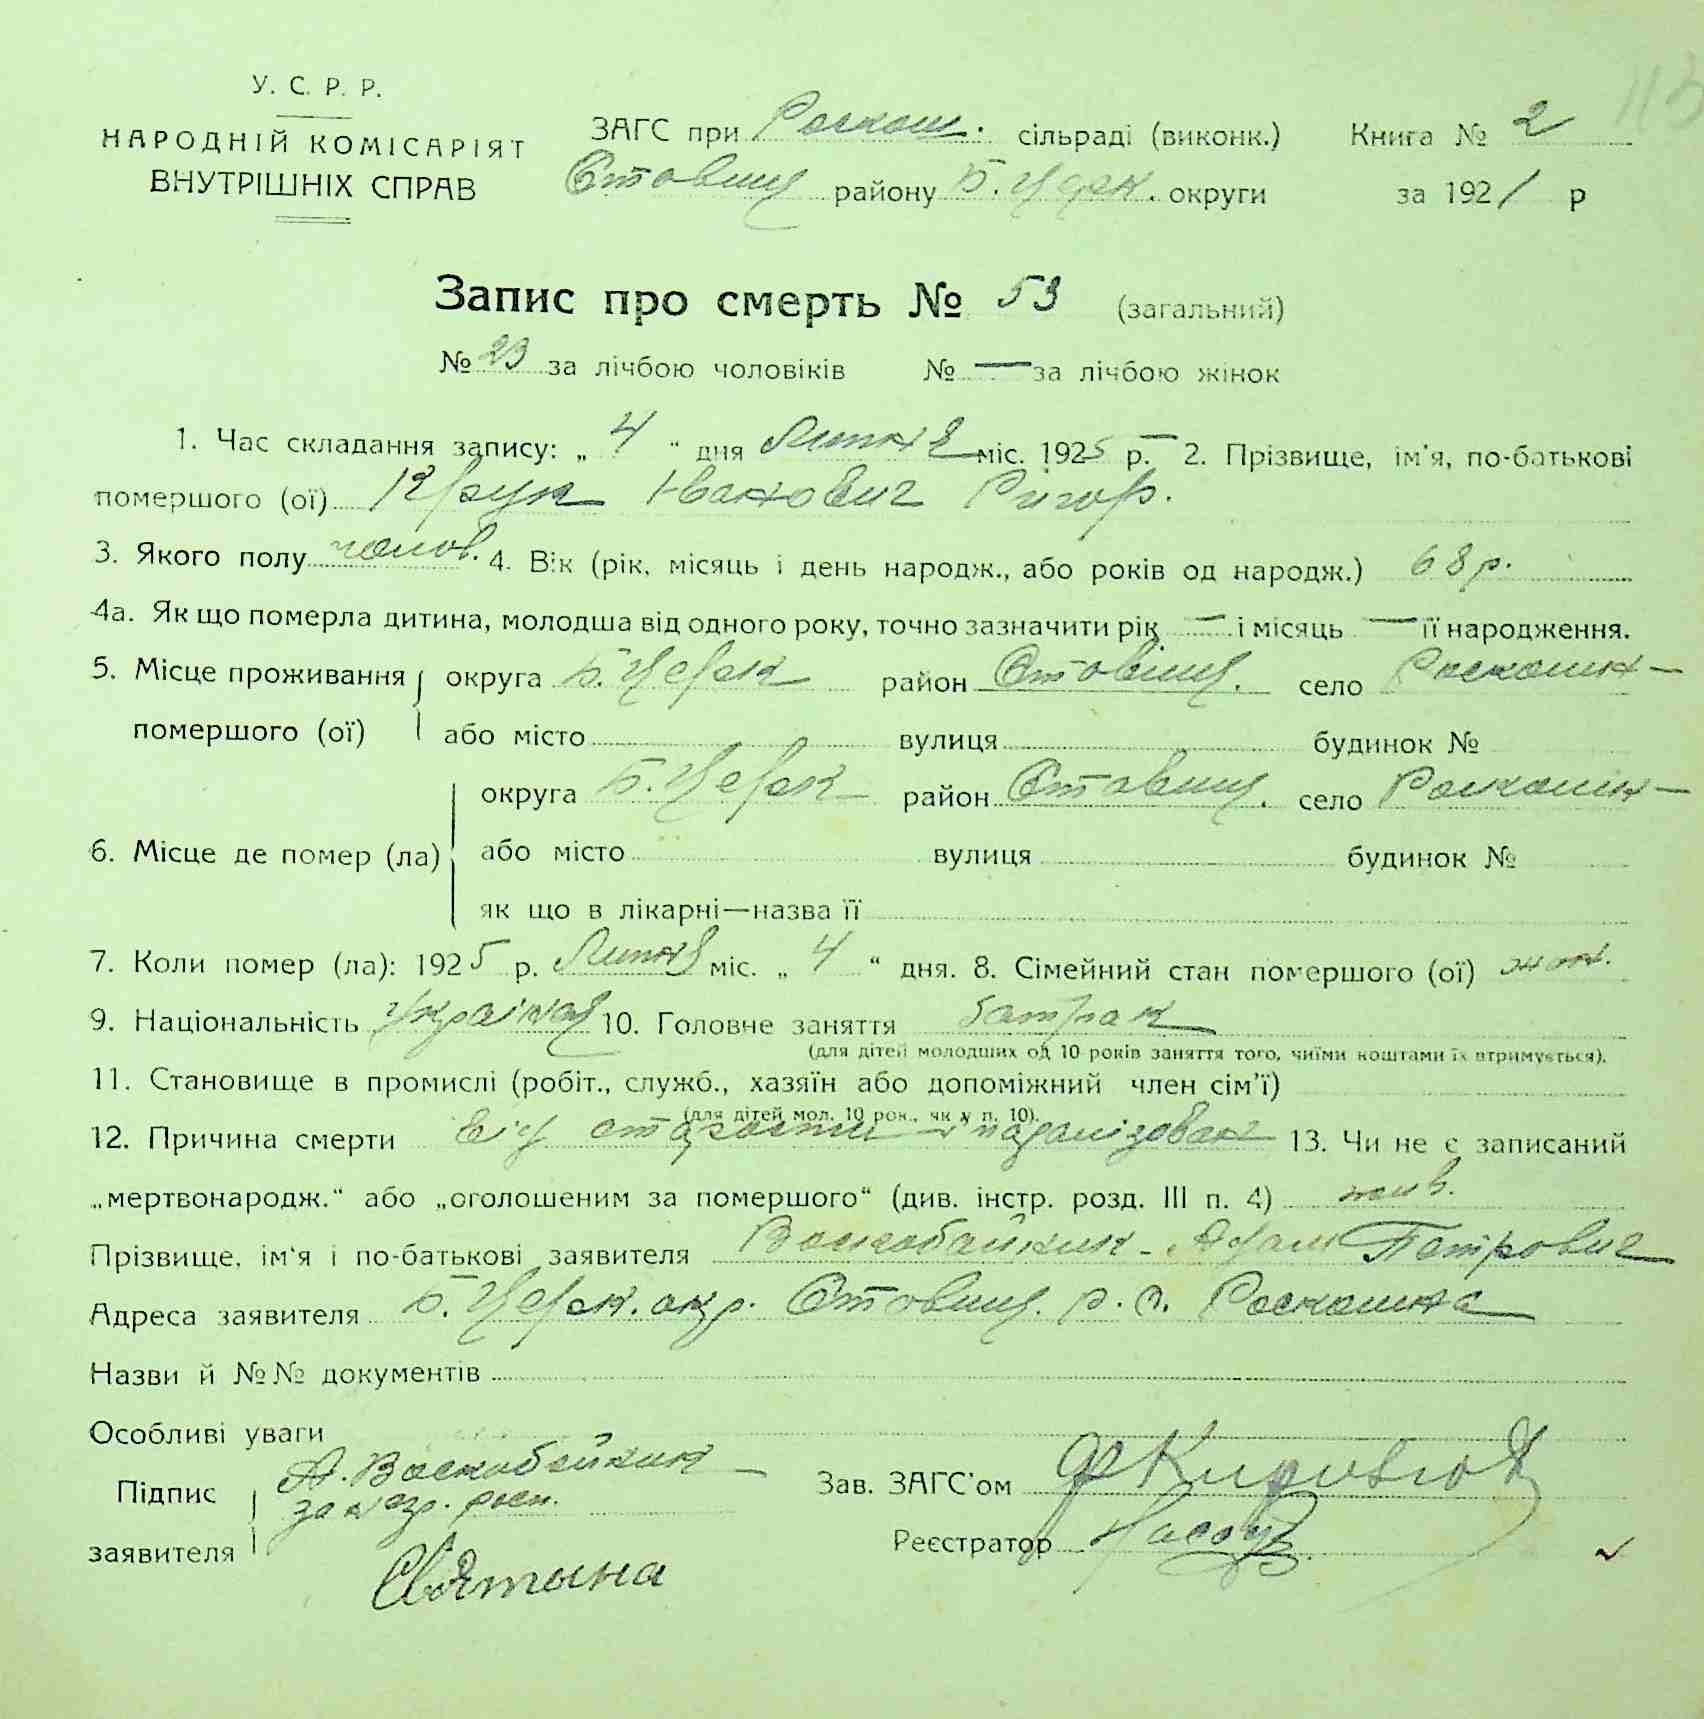 У. С. Р. Р.
НАРОДНІЙ КОМІСАРІЯТ
ВНУТРІШНІХ СПРАВ
113
ЗАГС при Роскош. сільраді (виконк.) Книга № 2
Ставищ району Б. Церк. округи за 192/ р
Запис про смерть № 53 (загальний)
№ 23 за лічбою чоловіків № — за лічбою жінок
1. Час складання запису: „ 4 “ дня Липня міс. 1925 р. 2. Прізвище, ім'я, по-батькові
помершого (ої) Крук Іванович Григор.
3. Якого полу чолов. 4. Вік (рік, місяць і день народж., або років од народж.) 68 р.
4а. Як що померла дитина, молодша від одного року, точно зазначити рік — і місяць — її народження.
5. Місце проживання округа Б. Церк район Ставищ. село Роскошн—
помершого (ої) або місто вулиця будинок №
округа Б. Церк район Ставищ. село Роскошн—
6. Місце де помер (ла) або місто вулиця будинок №
як що в лікарні—назва її
7. Коли помер (ла): 1925 р. Липня міс. „ 4 “ дня. 8. Сімейний стан помершого (ої) жон.
9. Національність 10. Головне заняття батрак
(для дітей молодших од 10 років заняття того, чиїми коштами їх втримується).
11. Становище в промислі (робіт., служб., хазяїн або допоміжний член сім'ї)
(для дітей мол. 10 рок., як у п. 10).
12. Причина смерти від старости і паралізован 13. Чи не є записаний
„мертвонародж.“ або „оголошеним за помершого“ (див. інстр. розд. III п. 4)
Прізвище, ім'я і по-батькові заявителя Воскобойник Адам Петрович
Адреса заявителя Б. Церк. окр. Ставищ. р. с. Роскошна
Назви й №№ документів
Особливі уваги
Підпис А. Воскобойник
за негр. росп.
заявителя
Святына
Зав. ЗАГС'ом
Реєстратор